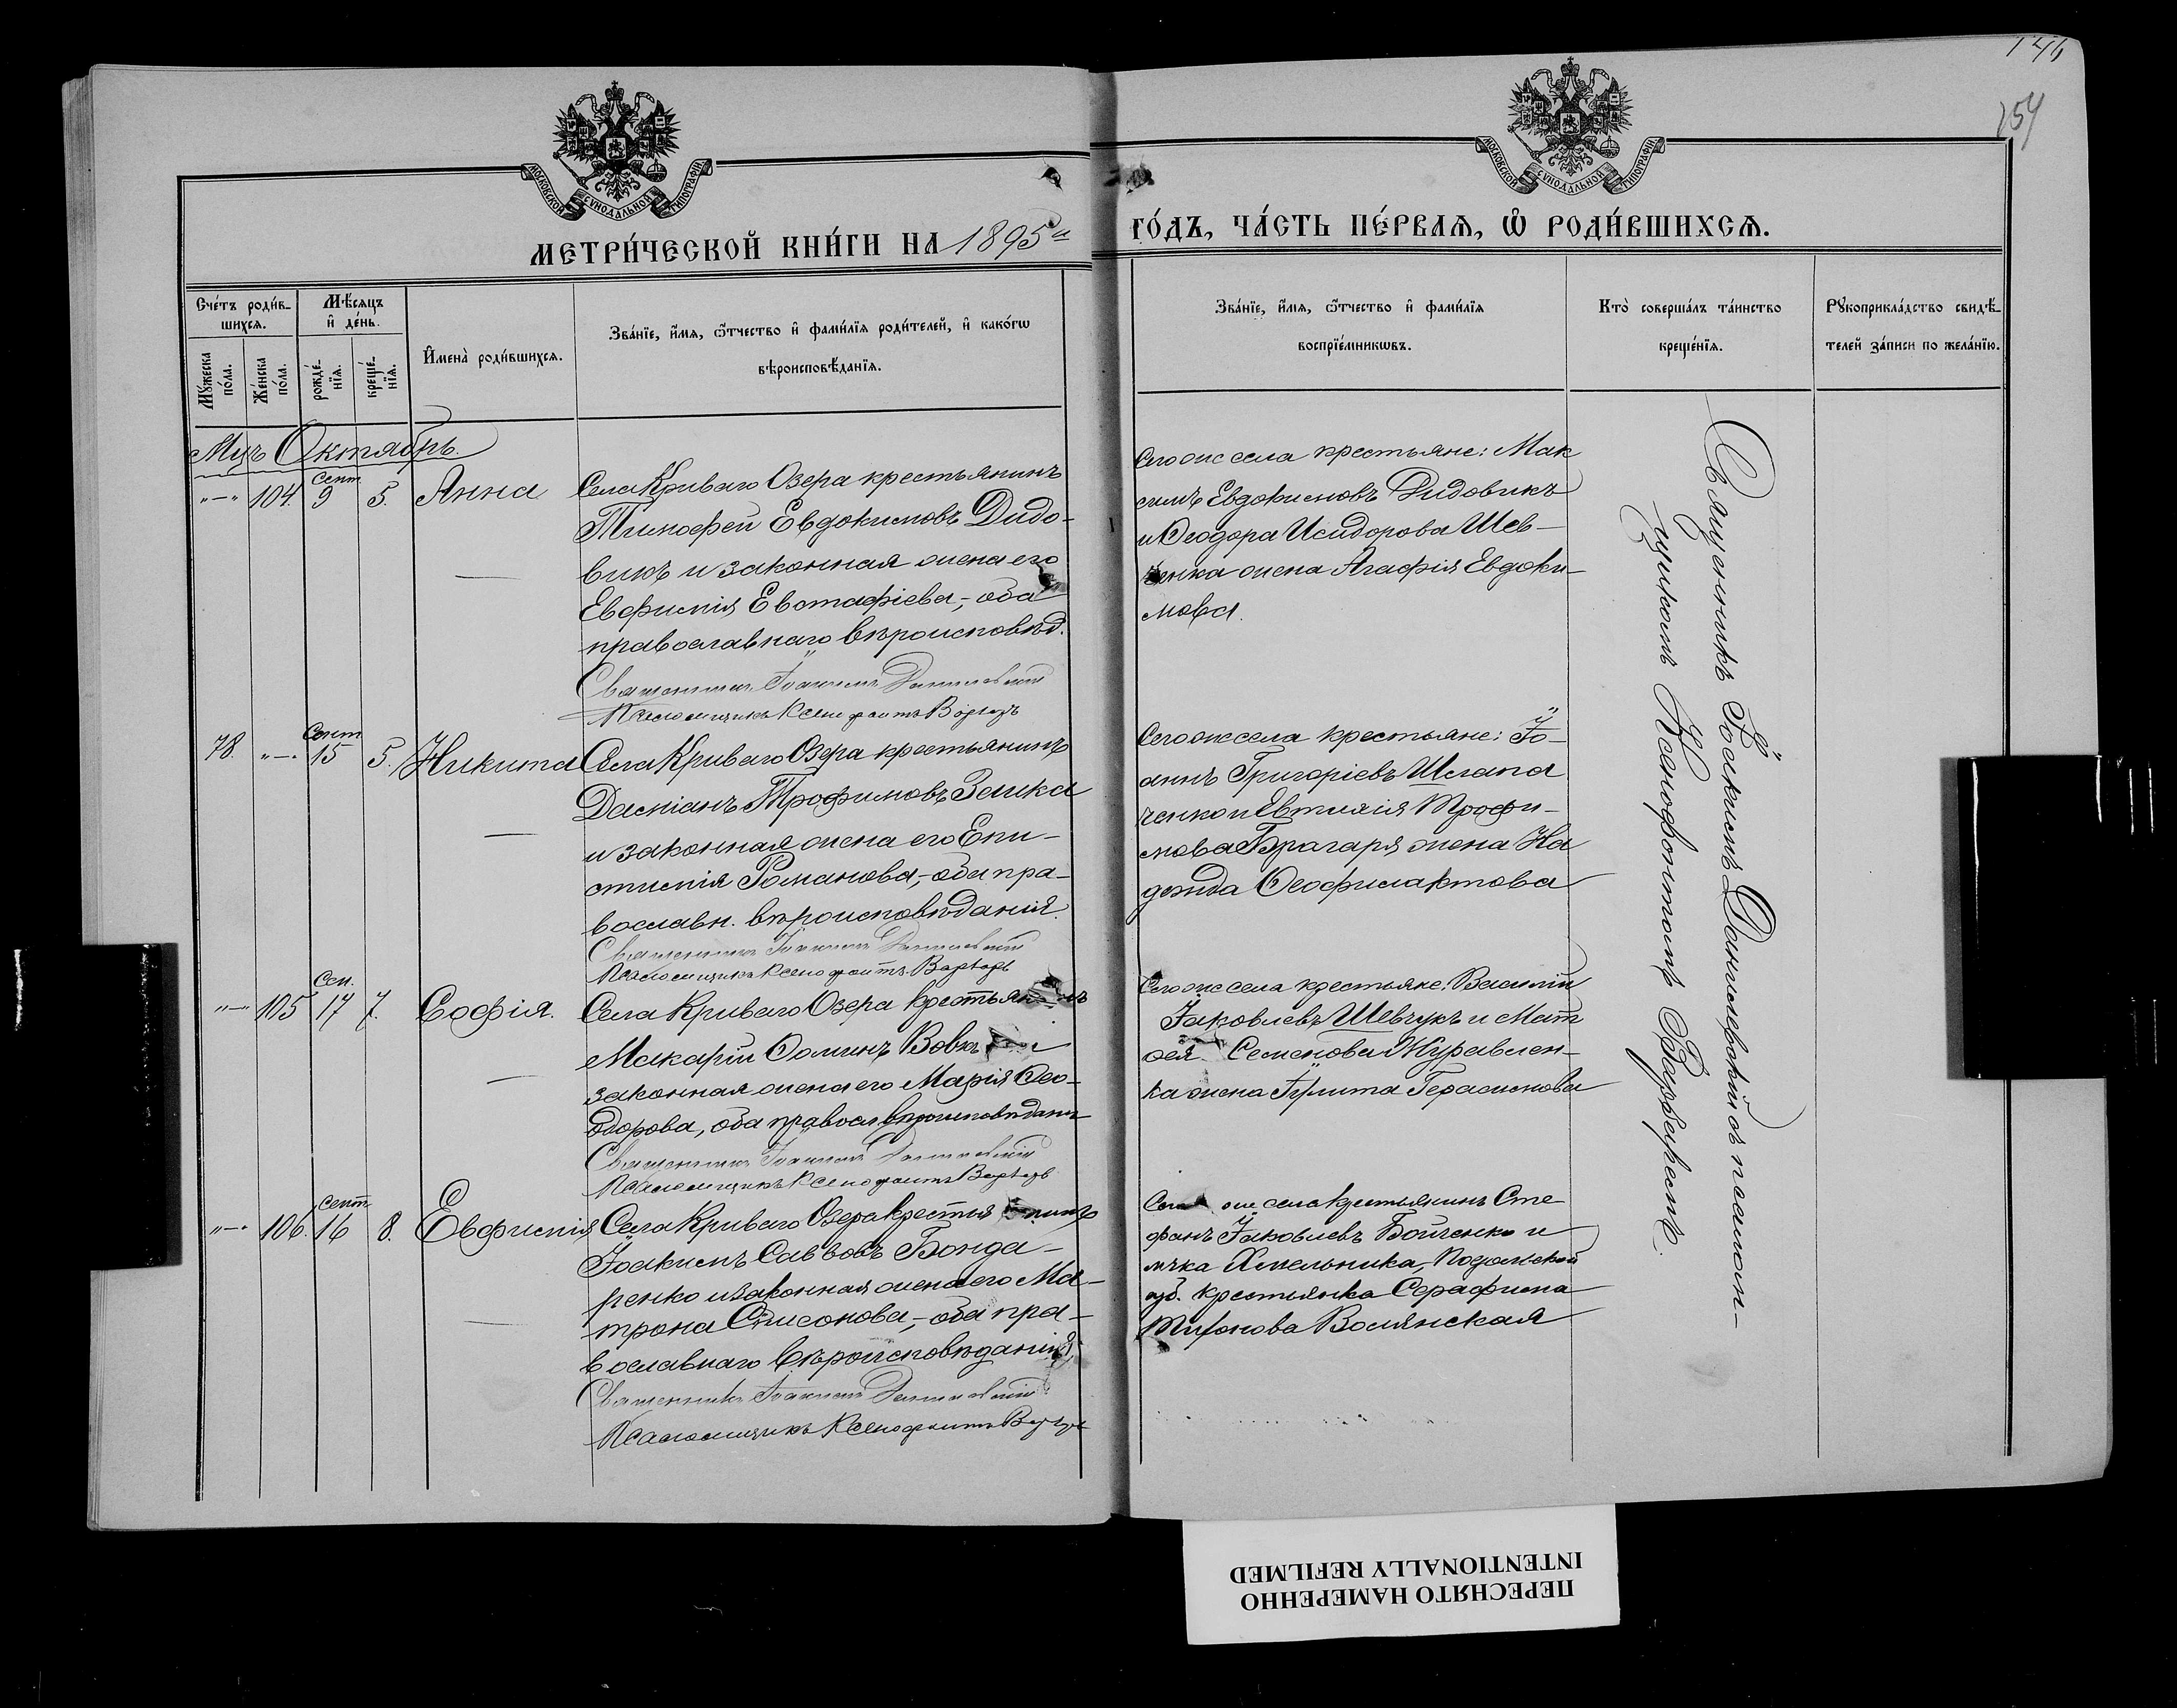 146
154
МОСКОВСКОЙ СѴНОДАЛЬНОЙ ТИПОГРАФІИ
МОСКОВСКОЙ СѴНОДАЛЬНОЙ ТИПОГРАФІИ
МЕТРИ́ЧЕСКОЙ КНИ́ГИ НА 1895й
ГО́ДЪ, ЧА́СТЬ ПЕ́РВАѦ, Ѡ҆ РОДИ́ВШИХСѦ.
Сче́тъ роди́в-
шихсѧ.
Мꙋ́жеска
по́ла.
Же́нска
по́ла.
Мѣ́сѧцъ
и҆ де́нь.
рожде́-
нїѧ.
креще́-
нїѧ.
И҆мена̀ роди́вшихсѧ.
Зва́нїе, и҆́мѧ, ѻ҆́тчество и҆ фами́лїѧ роди́телей, и҆ како́гѡ
вѣроисповѣ́данїѧ.
Зва́нїе, и҆́мѧ, ѻ҆́тчество и҆ фами́лїѧ
воспрїе́мникѡвъ.
Кто̀ соверша́лъ та́инство
креще́нїѧ.
Рꙋкоприкла́дство свидѣ́-
телей за́писи по жела́нїю.
Мцъ Октябрь.
"—" 104. Сент 9 5. Анна
Села Криваго Озера крестьянинъ
Тимофей Евдокимовъ Дидо-
викъ и законная жена его
Евфимія Евстафіева,- оба
православнаго вѣроисповѣд.
Священникъ Іоакимъ Данилевскій
Псаломщикъ Ксенофонтъ
Сего же села крестьяне: Мак
симъ Евдокимовъ Дидовикъ
и Ѳеодора Исидорова Шев-
ченка жена Агафія Евдоки-
мова.
78. "—" Сент 15 5. Никита
Села Криваго Озера крестьянинъ
Даміанъ Трофимовъ Заика
и законная жена его Епи-
стимія Романова,- оба пра-
вославн. вѣроисповѣданія.
Священникъ Іоакимъ Данилевскій
Псаломщикъ Ксенофонтъ
Сего же села крестьяне: Іо-
аннъ Григоріевъ
ченко и Евтихія Трофи-
мова Брагаря жена На
дежда Ѳеофилактова
"—" 105 Сен. 17 7. Софія.
Села Криваго Озера крестьянинъ
Макарій Ѳоминъ Вовкъ и
законная жена его Марія Ѳео-
дорова, оба правосл вѣроисповѣдан
Священникъ Іоакимъ Данилевскій
Псаломщикъ Ксенофонтъ
Сего же села крестьяне: Василій
Іаковлевъ Шевчукъ и Мат
ѳея Семенова Журавлен-
ка жена Іулита Герасимова
"—" 106. Сент 16 8. Евфимія
Села Криваго Озера крестьянинъ
Іоакимъ Саввовъ Бонда-
ренко и законная жена его Ма-
трона Симеонова,- оба пра-
вославнаго вѣроисповѣданія.
Священникъ Іоакимъ Данилевскій
Псаломщикъ Ксенофонтъ
Сего же села крестьянинъ Сте
фанъ Іаковлевъ Бойченко и
мѣка Хмельника, Подольской
губ. крестьянка Серафима
Тихонова Волянская
Священникъ Іоакимъ Данилевскій съ псалом-
щикомъ Ксенофонтомъ
ПЕРЕСНЯТО НАМЕРЕННО
INTENTIONALLY REFILMED